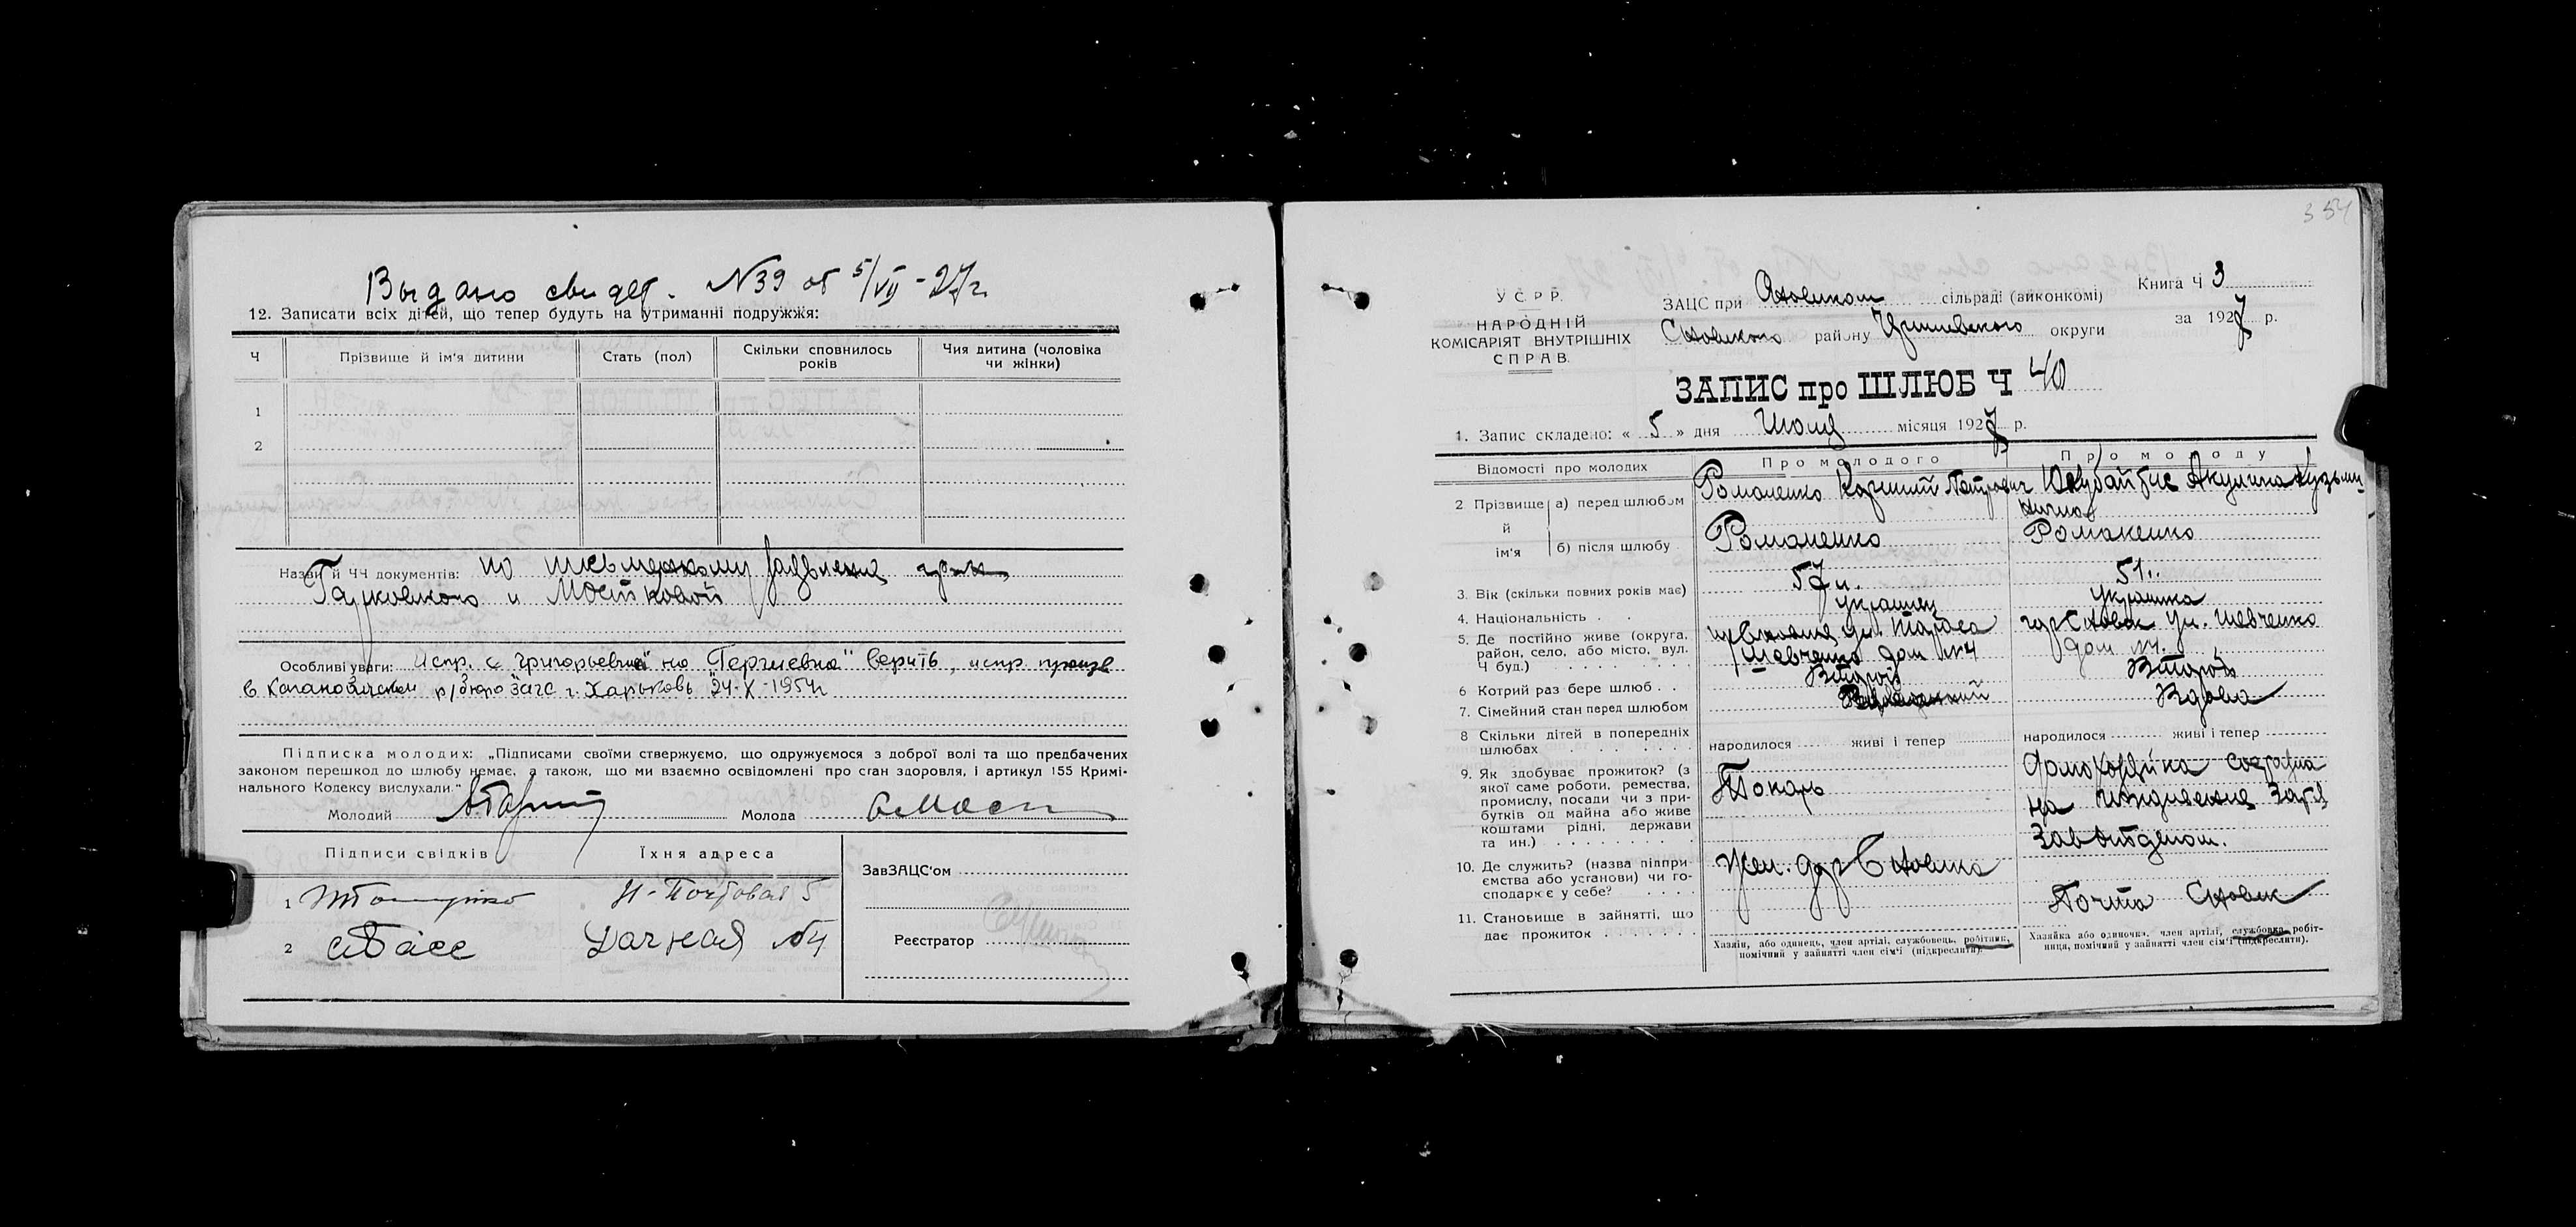 Выдано свидет. N39 от 5/VII-27г.
12. Записати всіх дітей, що тепер будуть на утриманні подружжя:
Ч Прізвище й ім'я дитини Стать (пол) Скільки сповнилось років Чия дитина (чоловіка чи жінки)
1
2
Назви й ЧЧ документів: по
и Мостковой
Особливі уваги: Испр. с "Григорьевна" на "Гергиевна" верить, испр. произв
в р/бюро загс г. Харьковъ 24-X-1954г
Підписка молодих: „Підписами своїми стверджуємо, що одружуємося з доброї волі та що предбачених
законом перешкод до шлюбу немає, а також, що ми взаємно освідомлені про стан здоровля, і артикул 155 Кримі-
нального Кодексу вислухали."
Молодий Молода
Підписи свідків Їхня адреса
ЗавЗАЦС'ом
1 Н-Почтовая 5
2 Дачная №4
Реєстратор
354
У С Р Р.
НАРОДНІЙ
КОМІСАРІЯТ ВНУТРІШНІХ
СПРАВ.
ЗАЦС при Сновском сільраді (виконкомі)
Сновского району округи
Книга Ч 3
за 1927 р.
ЗАПИС про ШЛЮБ Ч 40
1. Запис складено: « 5 » дня Июля місяця 1927 р.
Відомості про молодих Про молодого Про молоду
2 Прізвище й ім'я а) перед шлюбом Романенко Петрович Акулина Кузьми-
нична
б) після шлюбу Романенко Романенко
3. Вік (скільки повних років має) 57 л. 51
4. Національність украинец украинка
5. Де постійно живе (округа, район, село, або місто, вул. Ч буд.) ул. Тараса Шевченко дом №4 гор Сновск ул. Шевченко дом №4.
6 Котрий раз бере шлюб Второй Второй
7. Сімейний стан перед шлюбом Вдова
8 Скільки дітей в попередніх шлюбах народилося живі і тепер народилося живі і тепер
9. Як здобуває прожиток? (з якої саме роботи, ремества, промислу, посади чи з прибутків од майна або живе коштами рідні, держави та ин.) Токарь на иждивении зятя
10. Де служить? (назва підприємства або установи) чи господарює у себе? Жел. дор Сновск Почта Сновск
11. Становище в зайнятті, що дає прожиток
Хазяїн, або одинець, член артілі, службовець, робітник, помічний у зайнятті член сім'ї (підкреслити).
Хазяйка або одиночка, член артілі, службовка, робітниця, помічний у зайнятті член сім'ї (підкреслити).